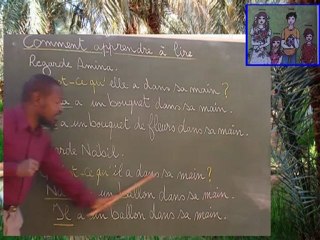 Comment apprendre à lire
Regarde Amina.
est-ce qu'elle a dans sa main ?
a un bouquet dans sa main.
a un bouquet de fleurs dans sa main.
Nabil.
est-ce qu'il a dans sa main ?
un ballon dans sa main.
Il a un ballon dans sa main.